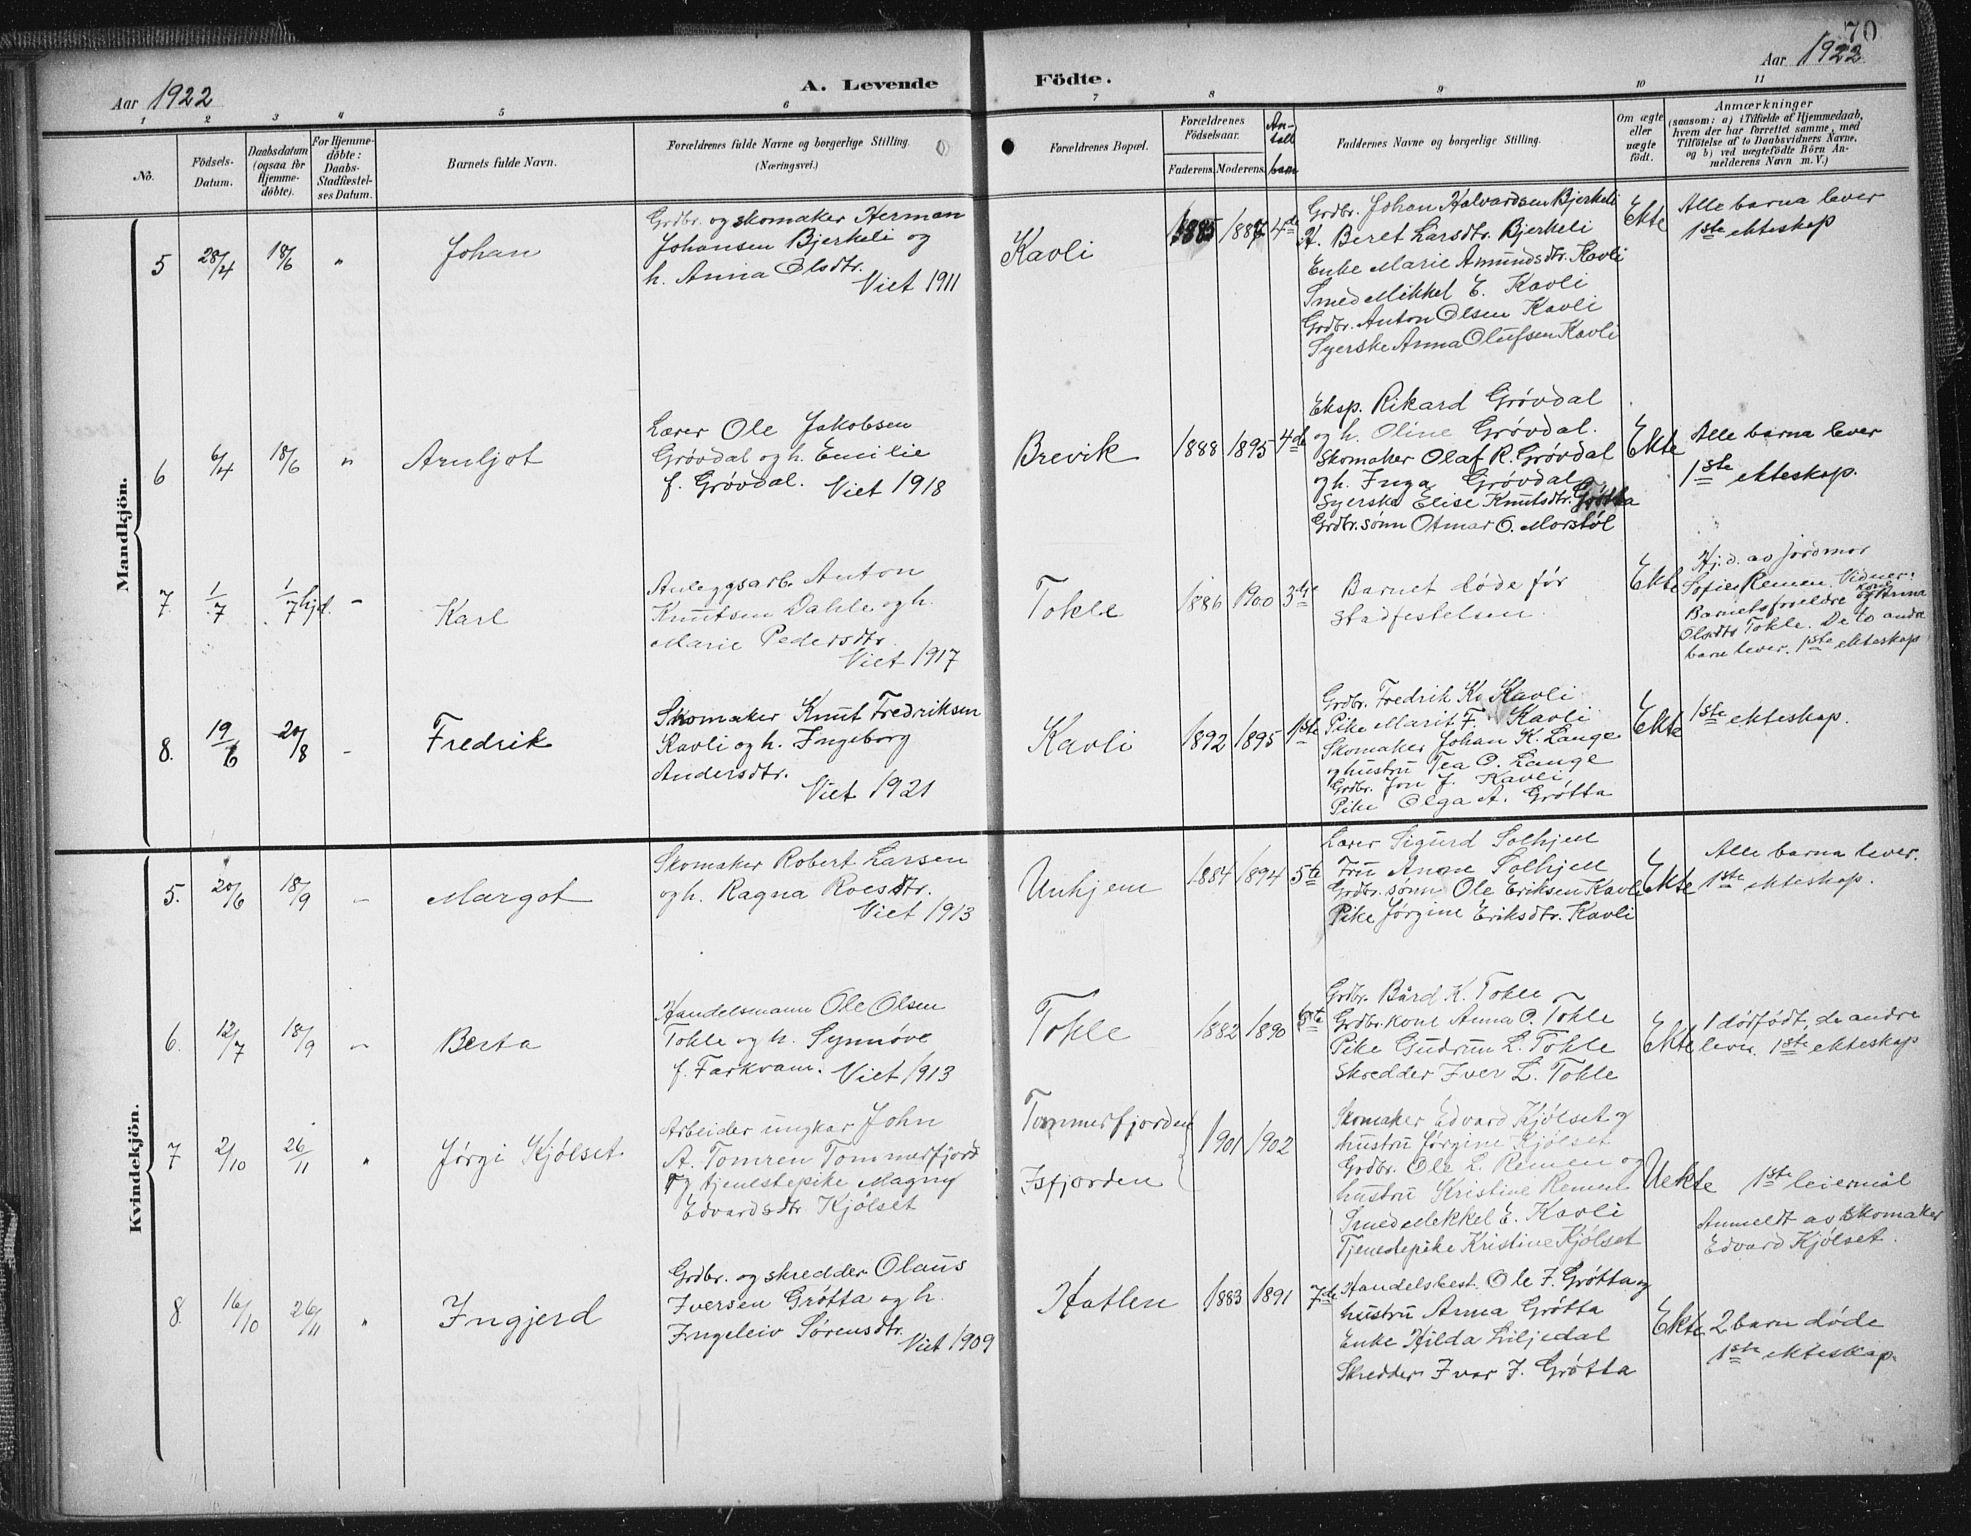 70
Aar 1922
A. Levende
Födte.
Aar 1922
1 2 3 4 5 6 7 8 9 10 11
No.
Födsels-
Datum.
Daabsdatum
(ogsaa for
Hjemme-
døbte).
For Hjemme-
döbte:
Daabs-
Stadfæstel-
ses Datum.
Barnets fulde Navn.
Forældrenes fulde Navne og borgerlige Stilling.
(Næringsvei.)
Forældrenes Bopæl.
Forældrenes
Födselsaar.
Faderens.
Moderens.
An-
tall
barn
Faddernes Navne og borgerlige Stilling.
Om ægte
eller
uægte
födt.
Anmærkninger
(saasom: a) i Tilfælde af Hjemmedaab,
hvem der har forrettet samme, med
Tilföielse af to Daabsvidners Navne,
og b) ved uægtefödte Börn An-
melderens Navn m. V.)
Mandkjön.
5 28/4 18/6 "
Johan
Grdbr. og skomaker Herman
Johansen Bjerkeli og
h. Anna Olsdtr.
Viet 1911
Kavli
1885 1887 4de
Grdbr. Johan Halvardsen Bjerkeli
H. Beret Larsdtr. Bjerkeli
Enke Marie Amundsdtr. Kavli
Smed Mikkel E. Kavli
Grdbr. Anton Olsen Kavli
Syerske Anna Olufsen Kavli
Ekte
Alle barna lever
1ste ekteskap
6 6/4 18/6 "
Arnljot
Lærer Ole Jakobsen
Grøvdal og h. Emilie
f. Grøvdal. Viet 1918
Brevik
1888 1895 4de
Eksp. Rikard Grøvdal
og h. Oline Grøvdal.
Skomaker Olaf R. Grøvdal
og h. Inga Grøvdal
Syerske Elise Knutsdtr. Grøtta
Grdbr. sønn Otmar O. Morstøl
Ekte
Alle barna lever
1ste ekteskap.
7. 1/7 1/7 hjd. -
Karl
Anleggsarb. Anton
Knutsen Dahle og h.
Marie Pedersdtr.
Viet 1917
Tokle
1886 1900 3dje
Barnet døde før
stadfestelsen
Ekte
Hj.d. av jordmor
Sofie Remen. Vidner:
Barnetsforeldre og kone Anna
Olsdtr Tokle. De to andre
barn lever. 1ste ekteskap
8. 19/6 20/8 -
Fredrik
Skomaker Knut Fredriksen
Kavli og h. Ingeborg
Andersdtr.
Viet 1921
Kavli
1892 1895 1ste
Grdbr. Fredrik K. Kavli
Pike Marit F. Kavli
Skomaker Johan K. Lange
og hustru Tea O. Lange
Grdbr. Jon J. Kavli
Pike Olga A. Grøtta
Ekte
1ste ekteskap.
Kvindekjön.
5. 20/6 18/9 -
Margot
Skomaker Robert Larsen
og h. Ragna Roesdtr.
Viet 1913
Unhjem
1884 1894 5te
Lærer Sigurd Solhjell
Fru Anne Solhjell
Grdbr. sønn Ole Eriksen Kavli
Pike Jørgine Eriksdtr. Kavli
Ekte
Alle barna lever.
1ste ekteskap.
6. 12/7 18/9 -
Berta
Handelsmann Ole Olsen
Tokle og h. Synnøve
f. Farkvam. Viet 1913
Tokle
1882 1890
Grdbr. Bård K. Tokle
Grdbr. kone Anna O. Tokle
Pike Gudrun L. Tokle
Skredder Iver L. Tokle
Ekte
1 dødfødt, de andre
lever. 1ste ekteskap
7 2/10 26/11 "
Jørgi Kjølset
Arbeider ungkar John
A. Tomren Tommerfjord
og tjenestepike Magny
Edvardsdtr Kjølset
Tommerfjorden
Isfjorden
1901 1902
Skomaker Edvard Kjølset og
hustru Jørgine Kjølset
Grdbr. Ole L. Remen og
hustru Kristine Remen
Smed Mekkel E. Kavli
Tjenestepike Kristine Kjølset
Uekte
1ste leiermål
Anmeldt av skomaker
Edvard Kjølset.
8. 16/10 26/11 "
Ingjerd
Grdbr. og skredder Olaus
Iversen Grøtta og h.
Ingeleiv Sørensdtr.
Viet 1909
Hatlen
1883 1891 7de
Handelsbest. Ole I. Grøtta og
hustru Anna Grøtta
Enke Hilda Liljedal
Skredder Ivar I. Grøtta
Ekte
2 barn døde
1ste ekteskap.